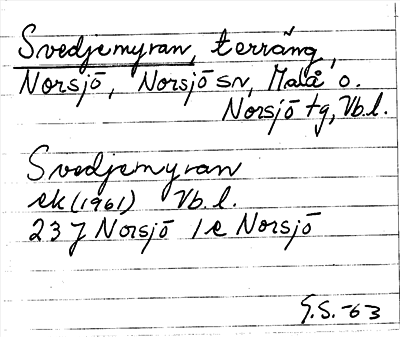 Svedjemyran, terräng,
Norsjö, Norsjö sn, Malå o.
Norsjö tg, Vb.l.
Svedjemyran
ek (1961) Vb.l.
23 J Norsjö 1e Norsjö
G.S. -63